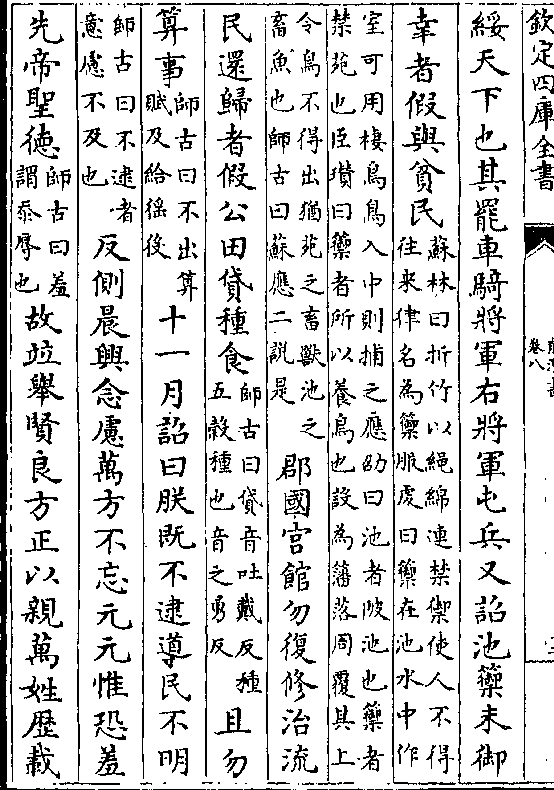 欽定四庫全書
卷八
綏天下也其罷車騎將軍右將軍屯兵又詔池籞未御
幸者假與貧民
蘇林曰折竹以繩綿連禁禦使人不得
往来律名為籞服䖍曰籞在池水中作
室可用棲鳥鳥入中則捕之應劭曰池者陂池也籞者
禁苑也臣瓚曰籞者所以養鳥也設為籓落周覆其上
令鳥不得出猶苑之畜獸池之
畜魚也師古曰蘇應二説是
郡國宫館勿復修治流
民還歸者假公田貸種食
師古曰貸音吐戴反種
五榖種也音之勇反
且勿
算事
師古曰不出算
賦及給徭役
十一月詔曰朕既不逮導民不明
師古曰不逮者
意慮不及也
反側晨興念慮萬方不忘元元惟恐羞
先帝聖德
師古曰羞
謂忝辱也
故竝舉賢良方正以親萬姓歴載